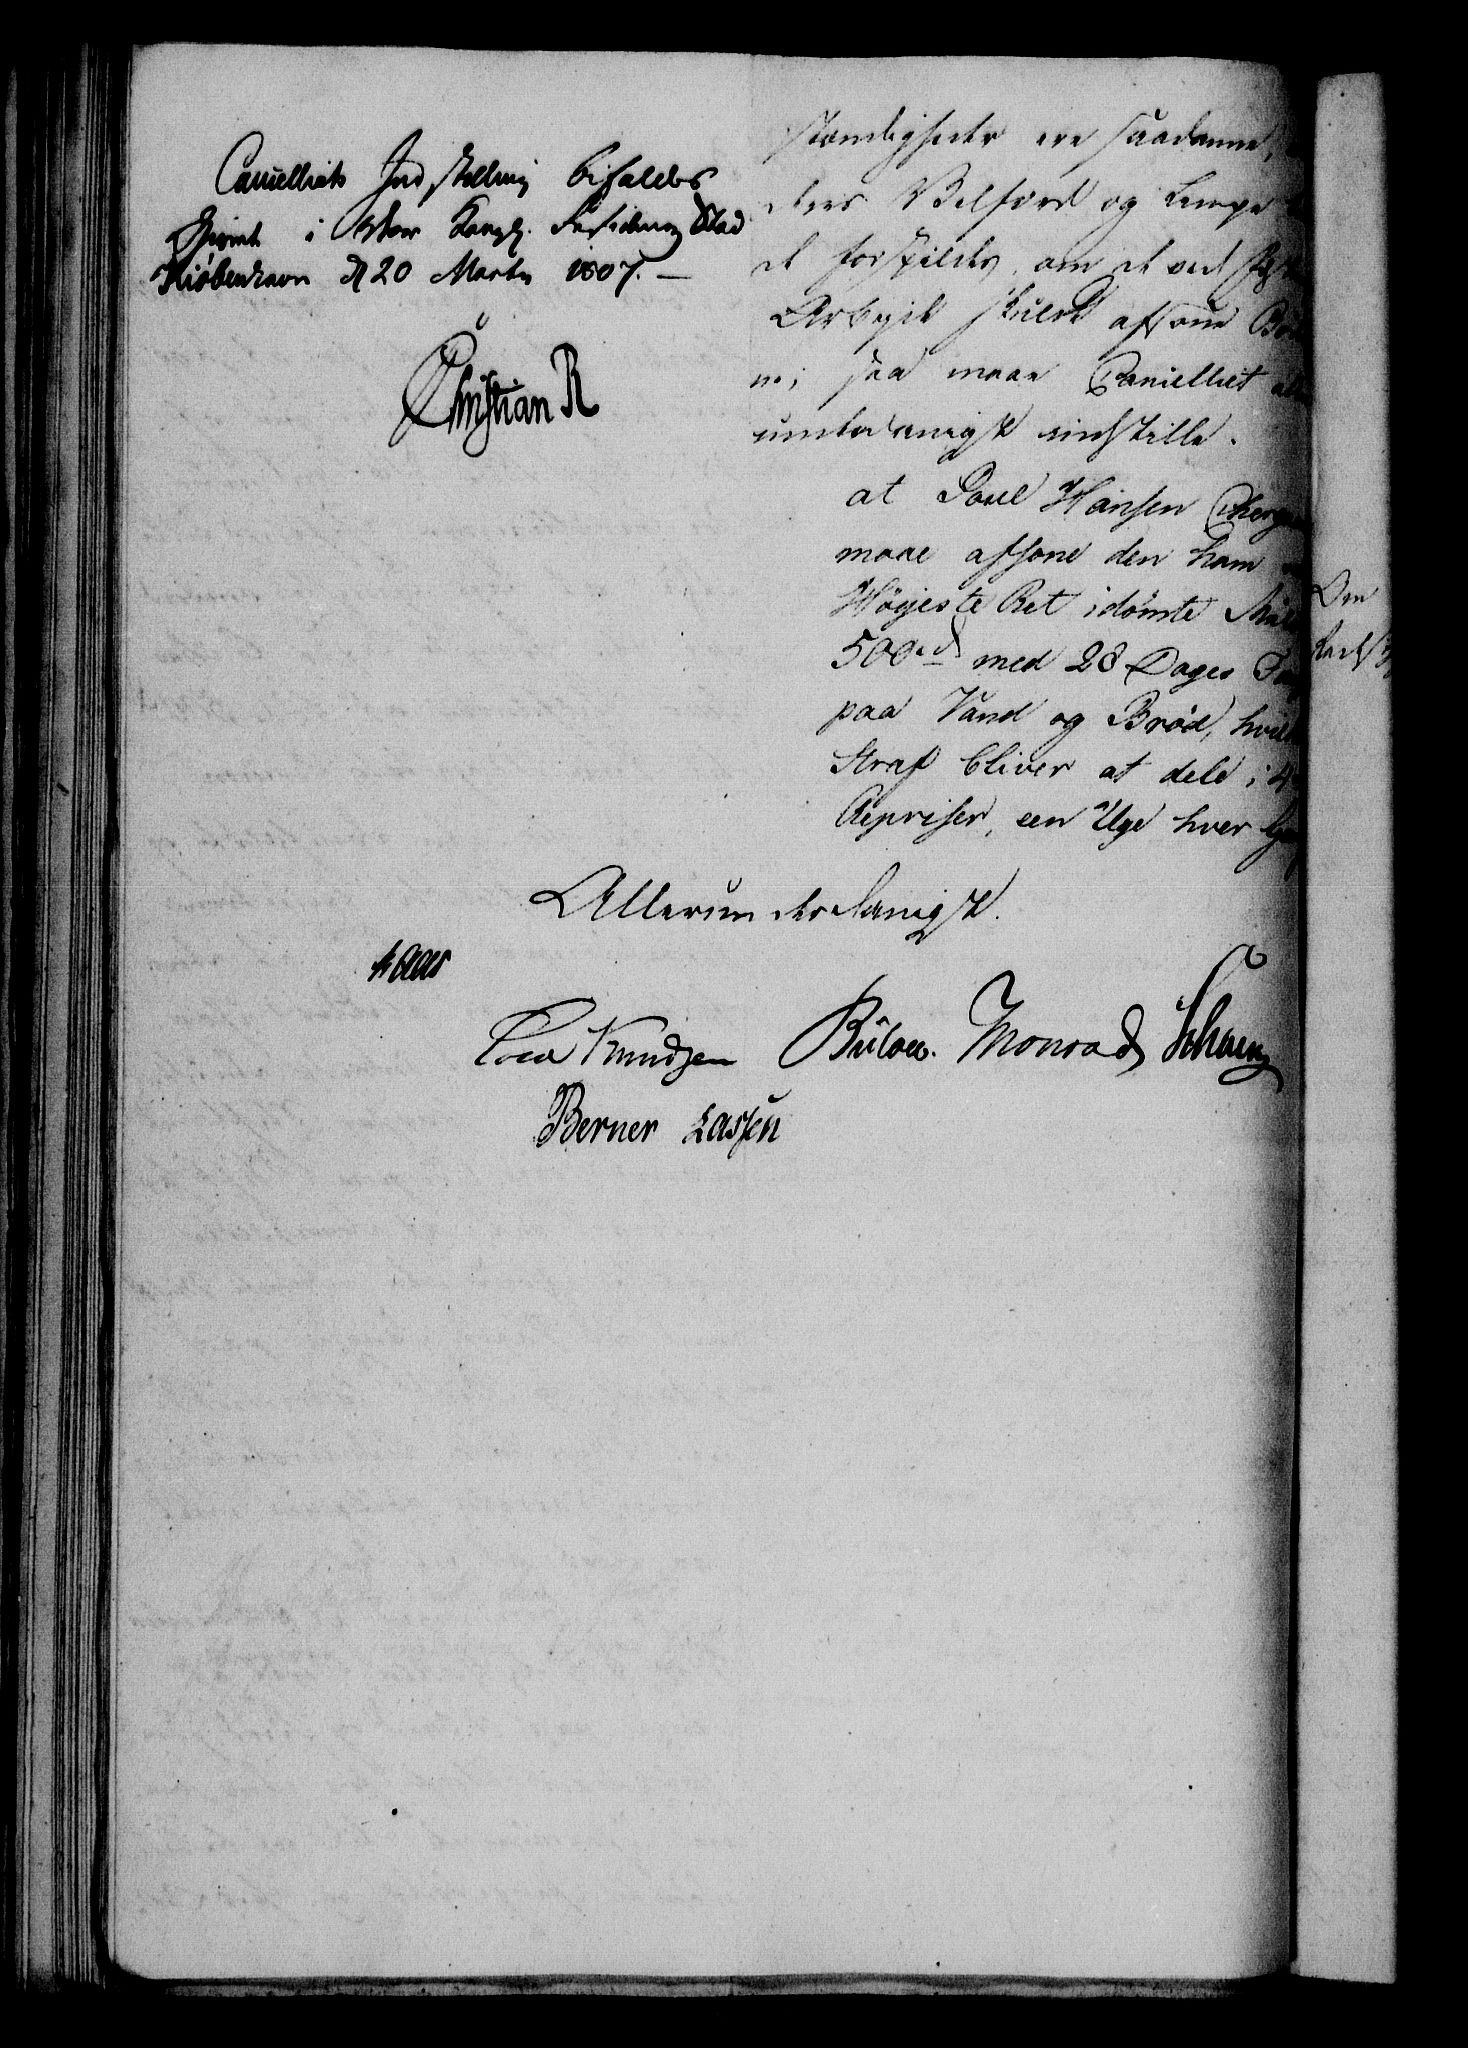 Cancelliets Indstilling bifaldes
Skrevet i Vor Kongl. Residence Stad
Kiøbenhavn d 20 Martz 1807. —
Christian R
stændigheder ere saadanne,
deres Velfærd og
forspildes, om ved
Arbejde skulde afsone
saa maae Cancelliet
underdanigst indstille.
at Poul Hansen
maae afsone den ham
Højeste Ret idømte
500 rd med 28 Dages
paa Vand og Brød,
Straf bliver at dele i 4
Repriser, een Uge hver
Allerunderdanigst.
Kaas
Knudsen Bülow. Monrad
Berner Lassen
Den